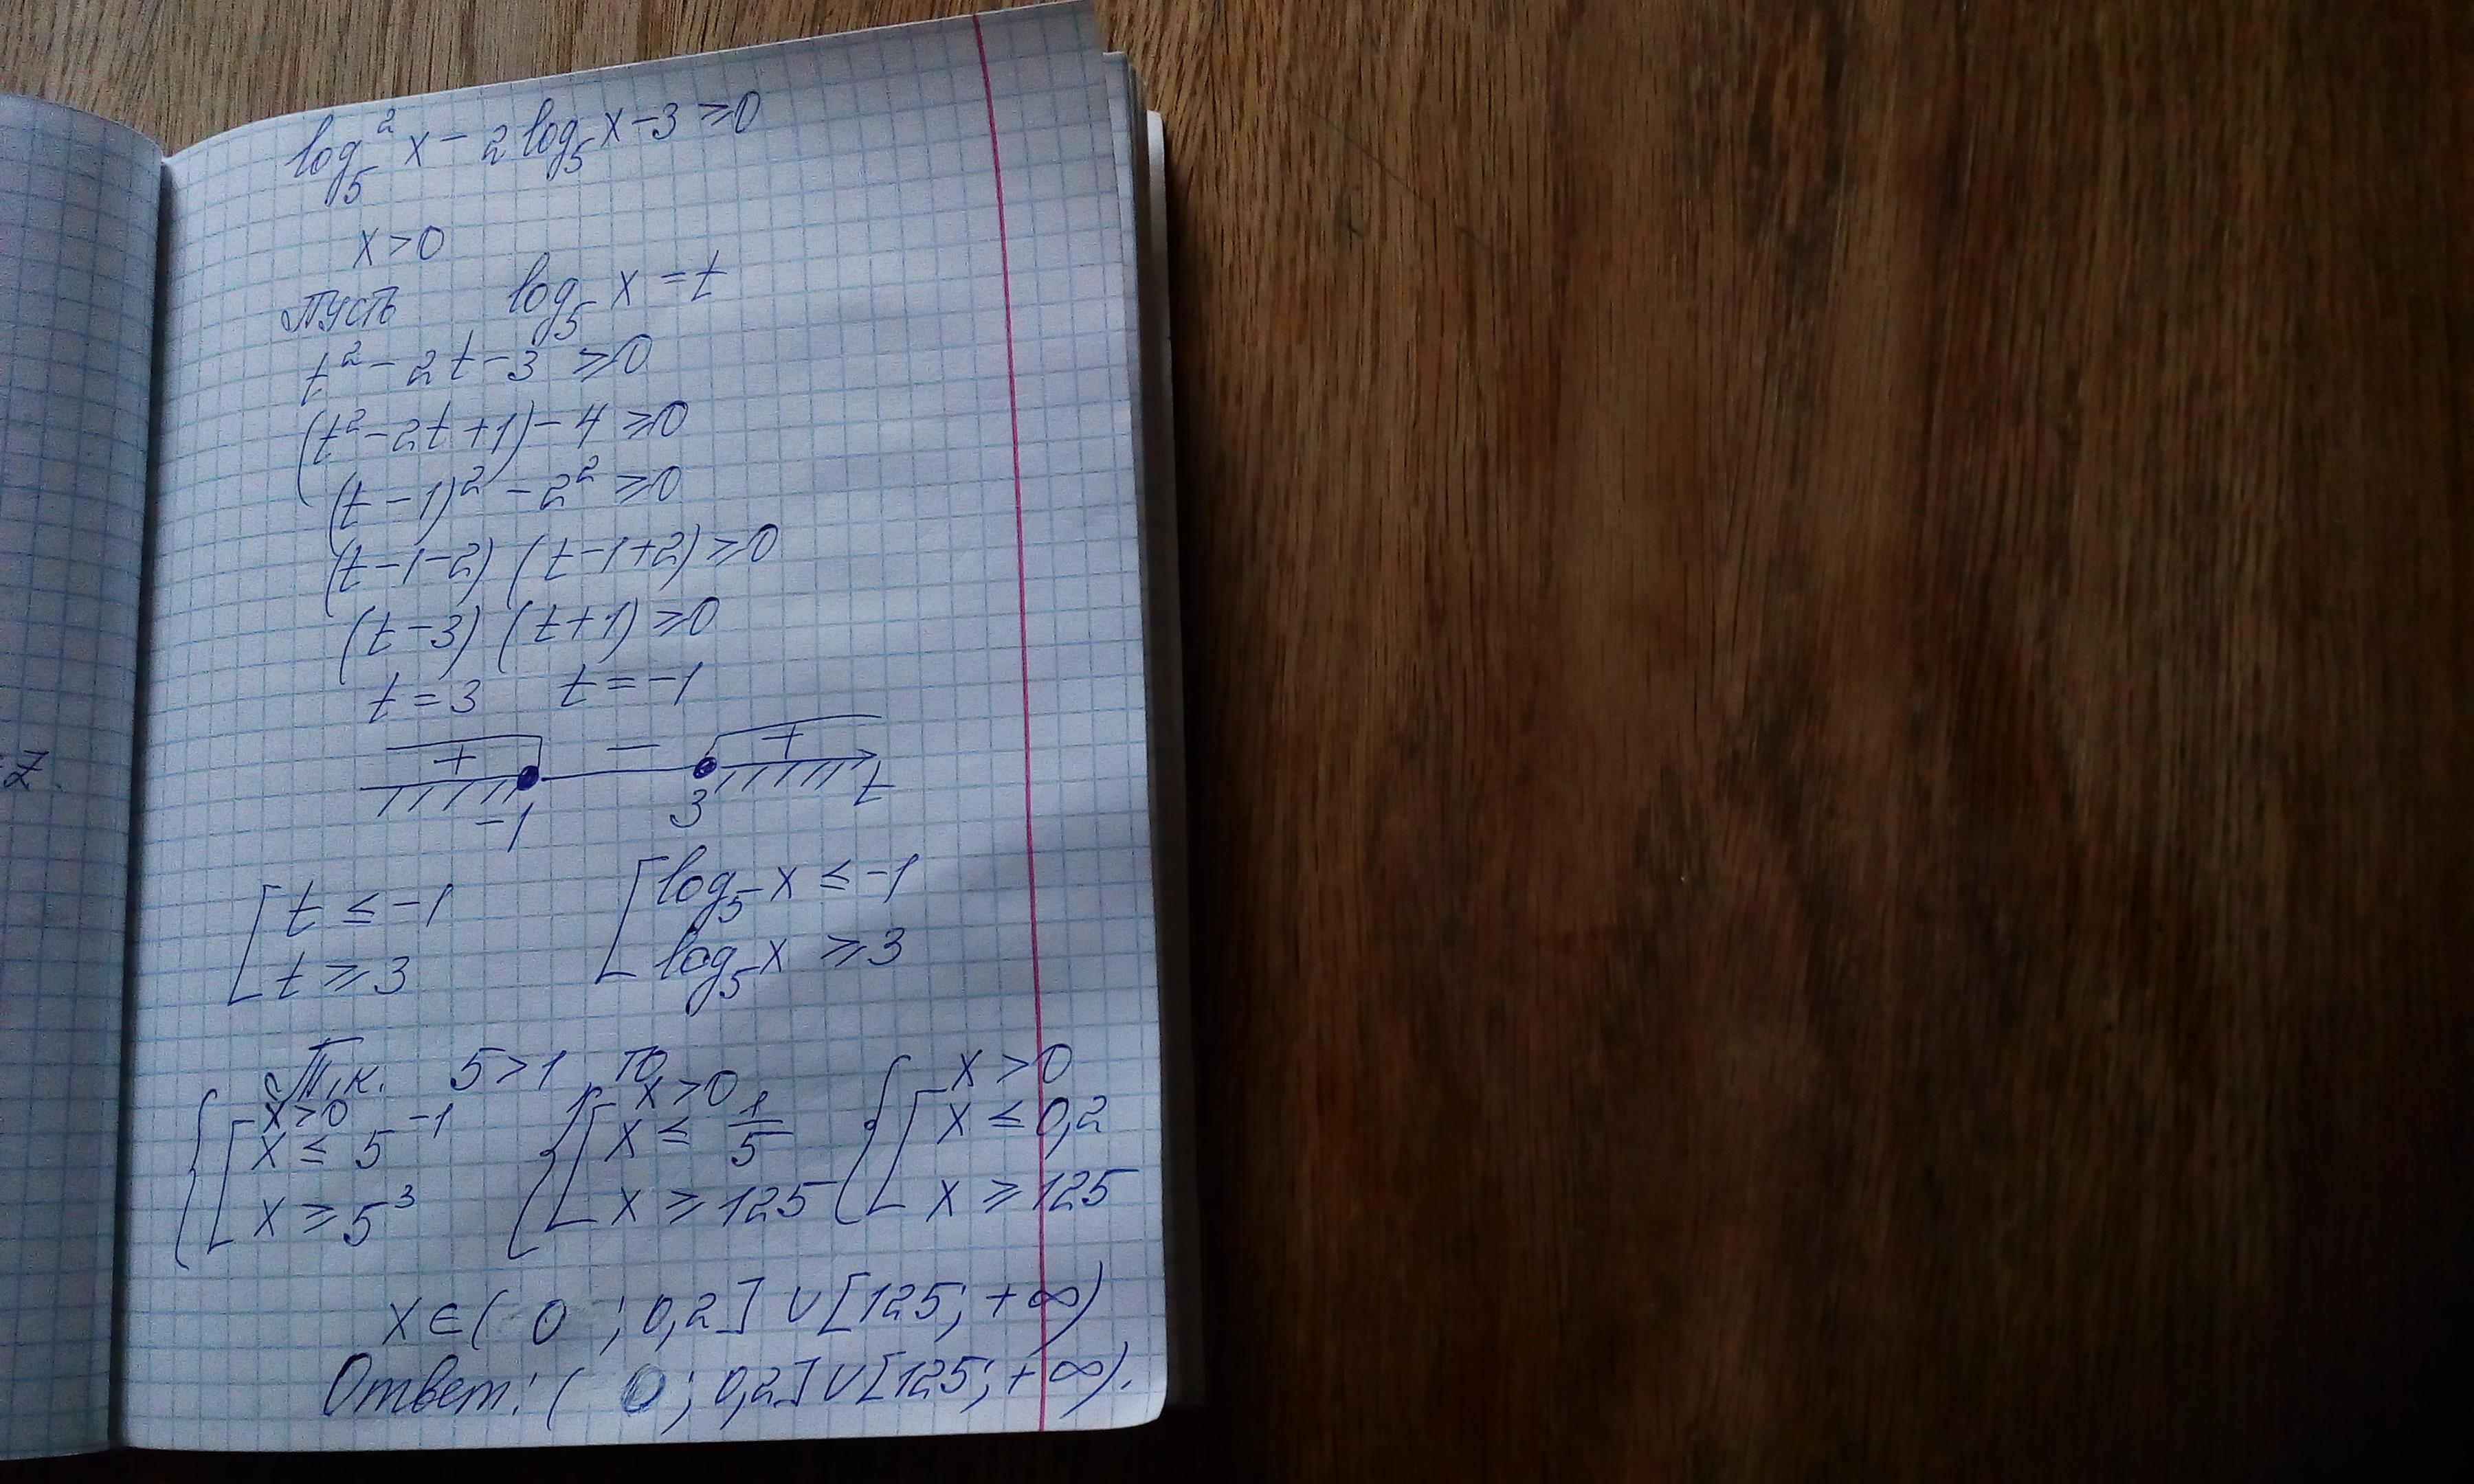 log₅² x - 2 log₅ x - 3 ≥ 0
x > 0
Пусть log₅ x = t
t² - 2t - 3 ≥ 0
(t² - 2t + 1) - 4 ≥ 0
(t - 1)² - 2² ≥ 0
(t - 1 - 2) (t - 1 + 2) ≥ 0
(t - 3) (t + 1) ≥ 0
t = 3 t = -1
+ - +
-1 3 t
[ t ≤ -1 [ log₅ x ≤ -1
t ≥ 3 log₅ x ≥ 3
Т.к. 5 > 1 то
x > 0 x > 0 x > 0
{ [ x ≤ 5⁻¹ { [ x ≤ 1/5 { [ x ≤ 0,2
x ≥ 5³ x ≥ 125 x ≥ 125
x ∈ ( 0 ; 0,2] ∪ [125; +∞)
Ответ: ( 0 ; 0,2] ∪ [125; +∞).
Z.